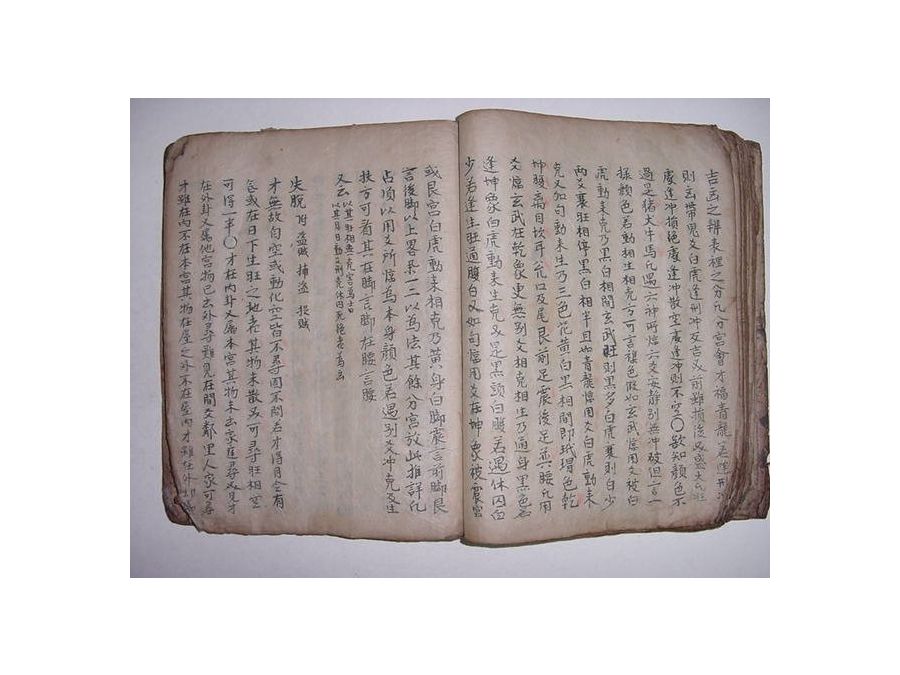 吉凶之辨表裡之分凡分宮會才福青龍若逢刑冲
則玄帶鬼文白虎逢刑冲又吉又前難損後必盛大凡旺
處逢冲損絕處逢冲散空處逢冲則不空〇欲知顏色不
過是猪犬牛馬凡遇六神所临六爻安静别無冲破但言一
様顏色若動相生相克方可言襍色假如玄武临用爻被白
虎動来克乃黑白相間玄武旺則黑多白虎衰則白少
两爻衰旺相停黑白相半且如青龍临用爻白虎動来
克又加句動来生乃三色花黄白黑相間即玳瑁色乾
坤腹离目坎耳兌口及尾艮前足震後足巽腰凡用
爻临玄武在乾象更無别爻相克相生乃通身黑色若
逢坤象白虎動来生克又是黑頭白腸若遇休囚白
少若逢生旺通腸白又如句临用爻在坤象被震宮
或艮宮白虎動来相克乃黄身白脚震言前脚艮
言後脚以上畧举一二以為法其餘分宮放此推詳凡
占須以用爻所临為本身顏色若遇别爻冲克及生
扶方可看其在脚言脚在腰言腰
又云以其旺相無克害為吉
以其月日動爻刑克休囚死絕者為凶
失脱附盗賊捕盗捉賊
才無故自空或動化空皆不尋固不問若才得月令有
氣或在日下生旺之地者其物未散又可尋旺相空
可得一半〇才在内卦又屬本宮其物未出家㝷尋又見才
在外卦又屬他宮物已去外尋難見在間爻鄰里人家可尋
才雖在内不在本宮其物在屋之外不在屋内才雖在外却